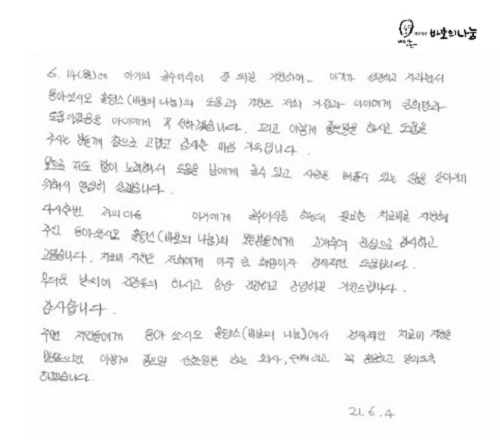 바보의나눔
6.14(월)에 아기의 골수이식이 잘 되길 기원하며.. 아기가 건강하고 자라면서
동아쏘시오 홀딩스(바보의 나눔)의 도움과 지원은 저희 가정과 아이에게
도움이었음을 아이에게 꼭 전하겠습니다. 그리고 이렇게 좋은일을 하시고 도움을
주시는 분들께 참으로 고맙고 감사한 마음 가득합니다.
앞으로 저도 많이 노력해서 도움을 남에게 줄수 있고 사랑을 베풀수 있는 삶을 살아가기
위해서 열심히 살겠습니다.
다시한번 저의 아들 아기에게 골수이식을 하는데 필요한 치료비를 지원해
주신 동아쏘시오 홀딩스(바보의 나눔)의 모든분들에게 고개숙여 진심으로 감사하고
고맙습니다. 치료비 지원은 저희에게 아주 큰 희망이자 경제적인 도움입니다.
무더운 날씨에 건강유의 하시고 항상 건강하고 강녕하길 기원드립니다.
감사합니다.
주변 지인들에게 동아쏘시오 홀딩스(바보의 나눔)에서 경제적인 치료비 지원을
받았으며 이렇게 좋은일 선한일을 하는 회사, 단체라고 꼭 홍보하고 알리도록
하겠습니다.
21.6.4